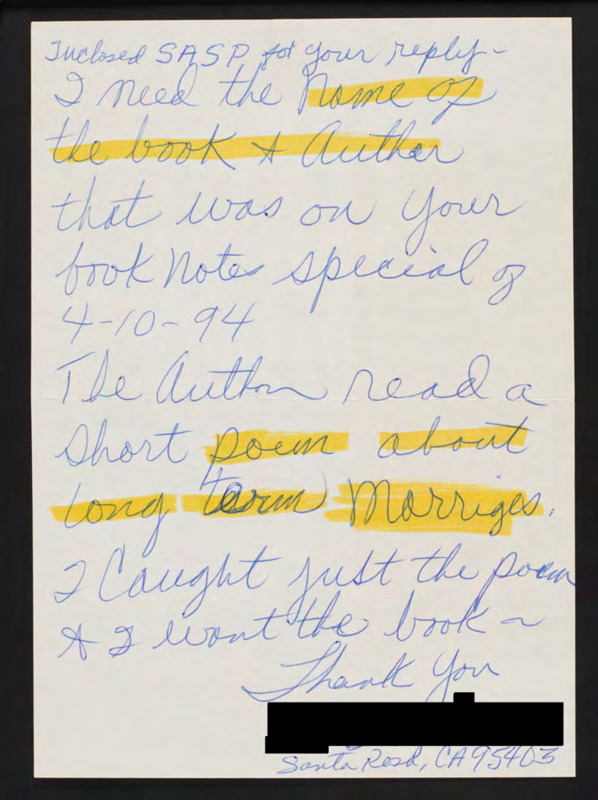 Inclosed SASP for your reply-
I need the Name of
the book & Auther
that was on your
book Notes special of
4-10-94
The Author read a
short poem about
long term Marriges.
I caught just the poem
& I want the book ~
Thank You
Santa Rosa, CA 95403